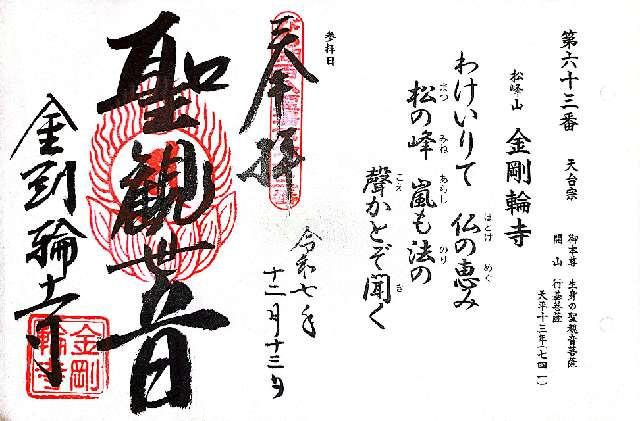 第六十三番 天台宗
御本尊 生身の聖観音菩薩
開山 行基菩薩
天平十三年(七四一)
松峰山 金剛輪寺
わけいりて 仏の恵み
松の峰 嵐も法の
聲かとぞ聞く
ほとけ めぐ
まつ みね あらし のり
こえ き
参拝日
奉拝
令和七年
十二月十三日
聖観世音
金剛輪寺
金剛
輪寺